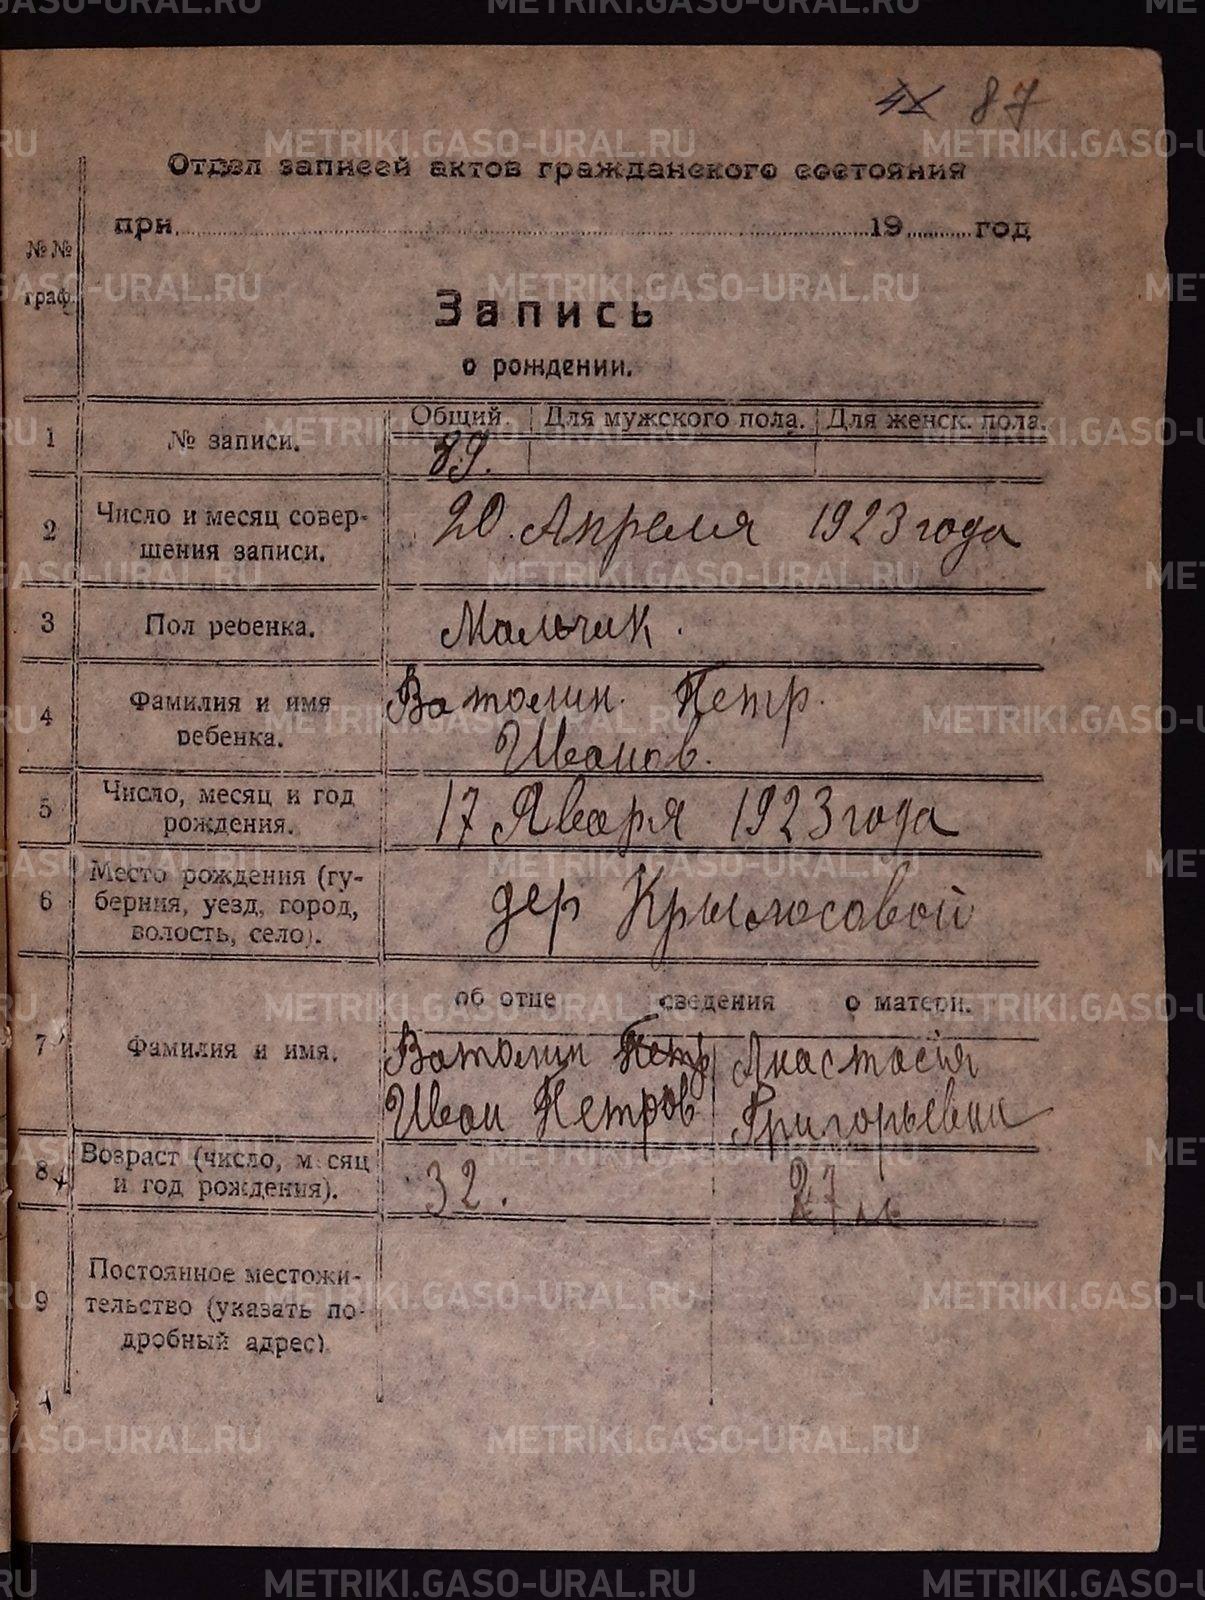 87
Отдел записей актов гражданского состояния
при 19 год
№№ граф.
Запись
о рождении.
Общий. Для мужского пола. Для женск. пола.
1 № записи. 89.
2 Число и месяц совер-
шения записи.
20. Апреля 1923 года
3 Пол ребенка. Мальчик.
4 Фамилия и имя
ребенка.
Ватолин. Петр.
Иванов.
5 Число, месяц и год
рождения.
17 Января 1923 года
6 Место рождения (гу-
берния, уезд, город,
волость, село).
дер Крылосовой
об отце сведения о матери.
7 Фамилия и имя.
Ватолин Петр Анастасія
Иван Петров Григорьевна
8 Возраст (число, месяц
и год рождения).
32. 27 л.
9 Постоянное местожи-
тельство (указать по-
дробный адрес)
METRIKI.GASO-URAL.RU